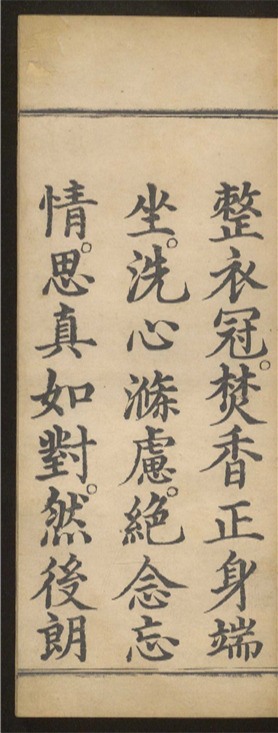 整衣冠。焚香正身端
坐。洗心滌慮。絕念忘
情。思真如對。然後朗